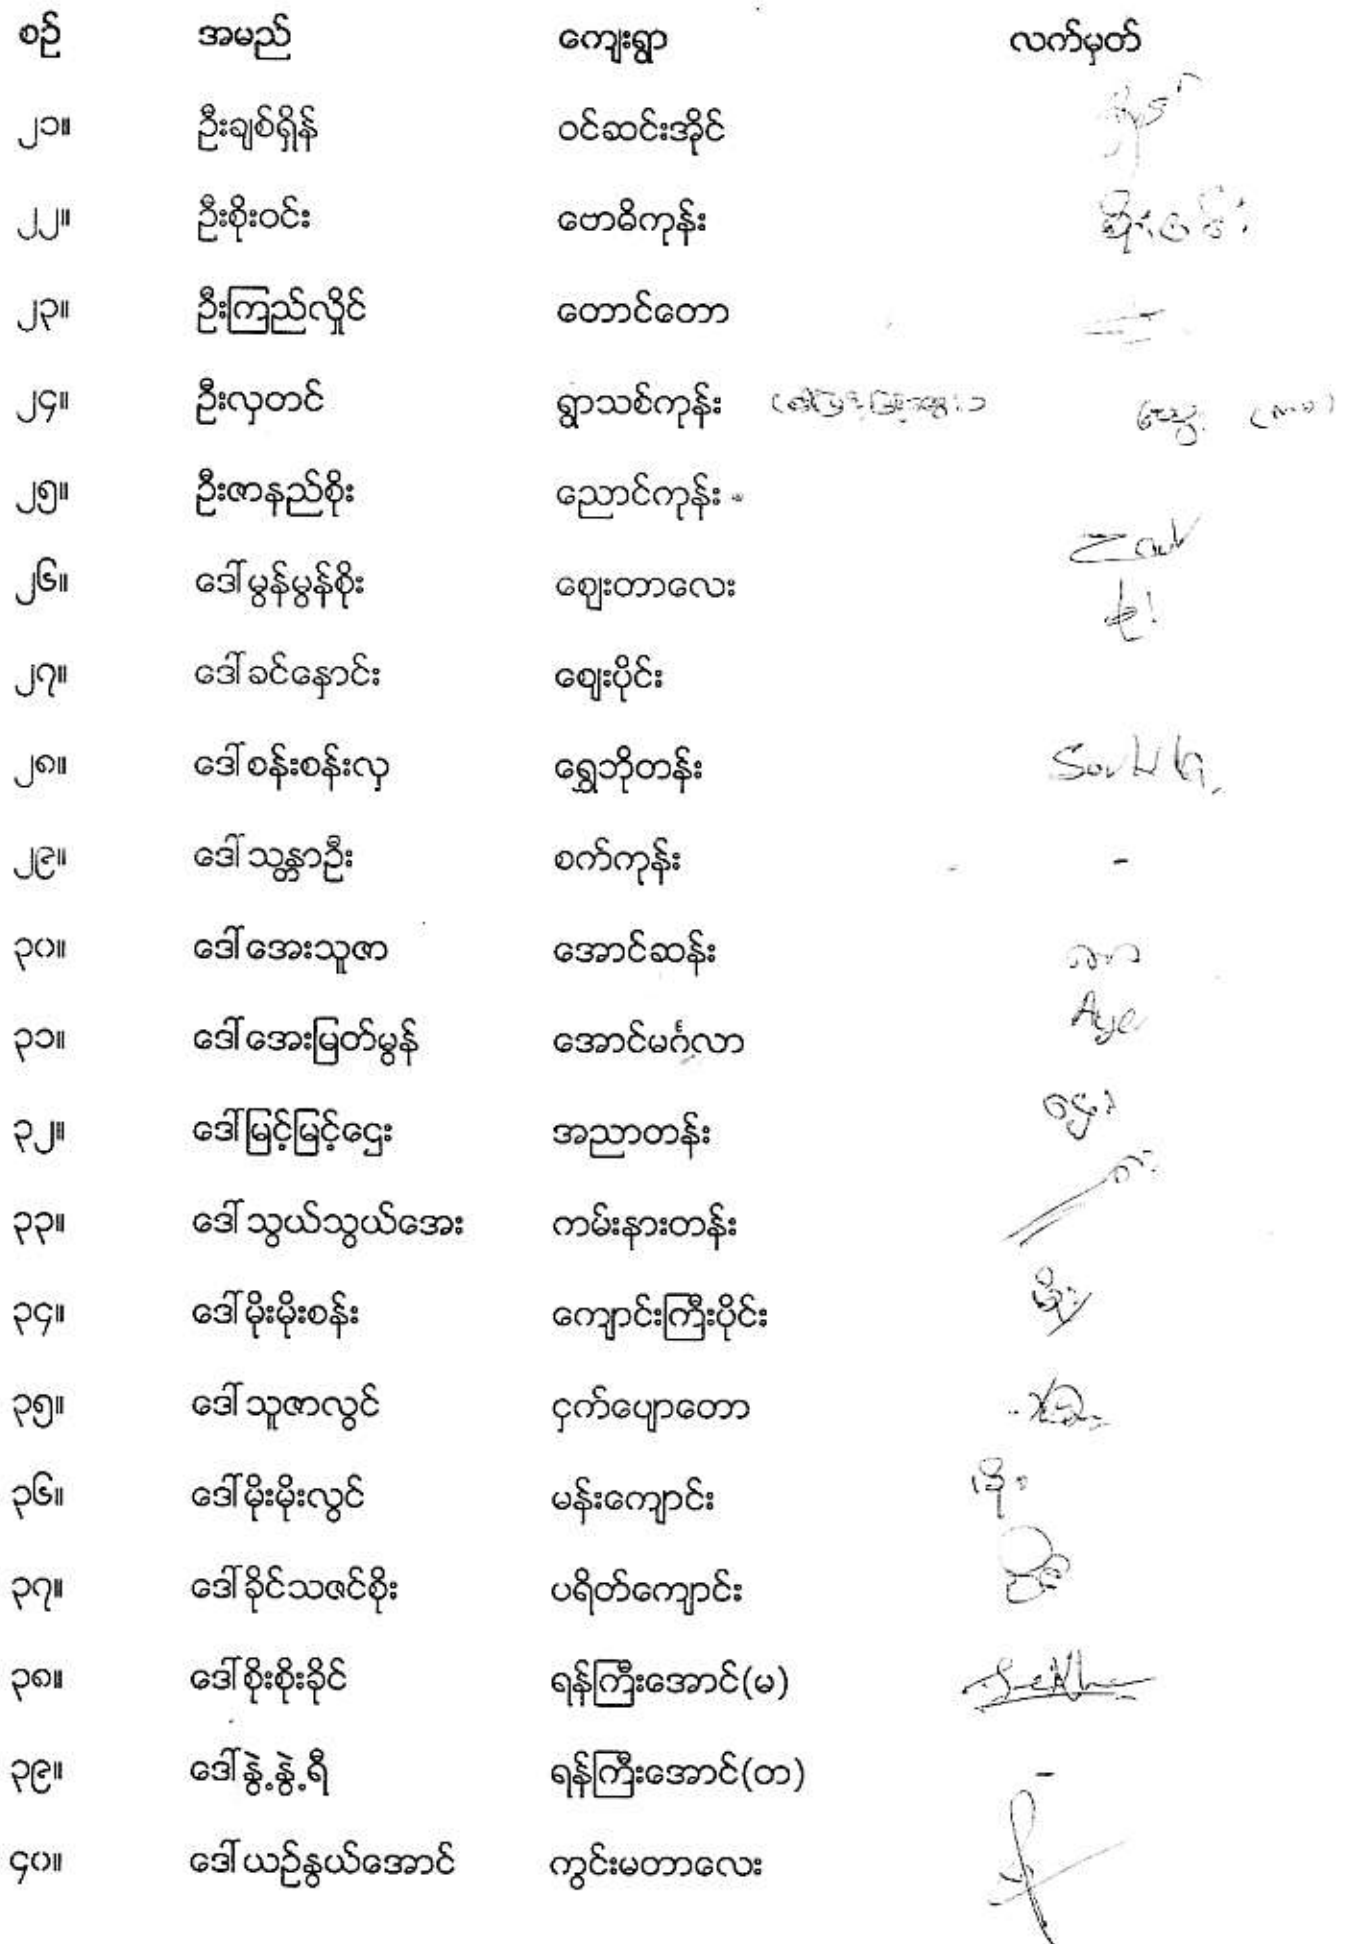 စဉ် အမည် ကျေးရွာ လက်မှတ်
၂၁။ ဦးချစ်ရှိန် ဝင်ဆင်းအိုင်
၂၂။ ဦးစိုးဝင်း ဗောဓိကုန်း စိုးဝင်း
၂၃။ ဦးကြည်လှိုင် တောင်တော
၂၄။ ဦးလှတင် ရွာသစ်ကုန်း
၂၅။ ဦးဇာနည်စိုး ညောင်ကုန်း
၂၆။ ဒေါ်မွန်မွန်စိုး ဈေးတာလေး
၂၇။ ဒေါ်ခင်နှောင်း ဈေးပိုင်း
၂၈။ ဒေါ်စန်းစန်းလှ ရွှေဘိုတန်း
၂၉။ ဒေါ်သန္တာဦး စက်ကုန်း -
၃၀။ ဒေါ်အေးသူဇာ အောင်ဆန်း
၃၁။ ဒေါ်အေးမြတ်မွန် အောင်မင်္ဂလာ Aye
၃၂။ ဒေါ်မြင့်မြင့်ဌေး အညာတန်း
၃၃။ ဒေါ်သွယ်သွယ်အေး ကမ်းနားတန်း
၃၄။ ဒေါ်မိုးမိုးစန်း ကျောင်းကြီးပိုင်း မိုး
၃၅။ ဒေါ်သူဇာလွင် ငှက်ပျောတော
၃၆။ ဒေါ်မိုးမိုးလွင် မန်းကျောင်း မိုး
၃၇။ ဒေါ်ခိုင်သဇင်စိုး ပရိတ်ကျောင်း
၃၈။ ဒေါ်စိုးစိုးခိုင် ရန်ကြီးအောင်(မ)
၃၉။ ဒေါ်နွဲ့နွဲ့ရီ ရန်ကြီးအောင်(တ) -
၄၀။ ဒေါ်ယဉ်နွယ်အောင် ကွင်းမတာလေး